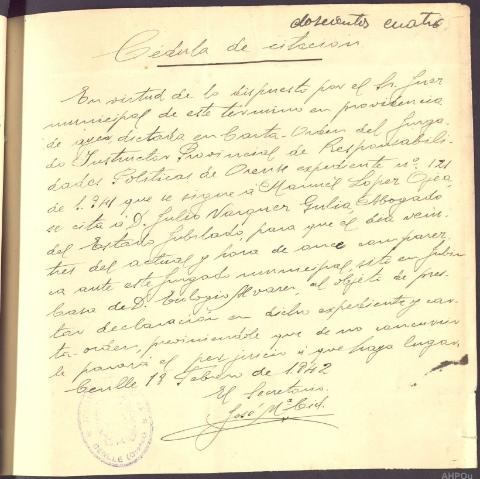 doscientos cuatro
Cédula de citacion
En virtud de lo dispuesto por el Sr. Juez
municipal de este termino en providencia
de ayer, dictada en Carta-Orden del Juzga-
do Instructor Provincial de Responsabili-
dades Politicas de Orense expediente nº. 121
de 1.941 que se sigue á Manuel Lopez Ojea,
se cita á D. Julio Vazquez Gulia Abogado
del Estado Jubilado, para que el dia vein-
tres del actual y hora de once comparez
ca ante este Juzgado municipal, sito en
Casa de D. Eulogio Alvarez, al objeto de pres-
tar declaración en dicho expediente y car-
ta-orden, previniendole que de no concurrir
le parará el perjuicio á que haya lugar.
Cenlle 18 Febrero de 1942
El Secretario.
José Mª Cid.
CENLLE (ORENSE)
AHPOu